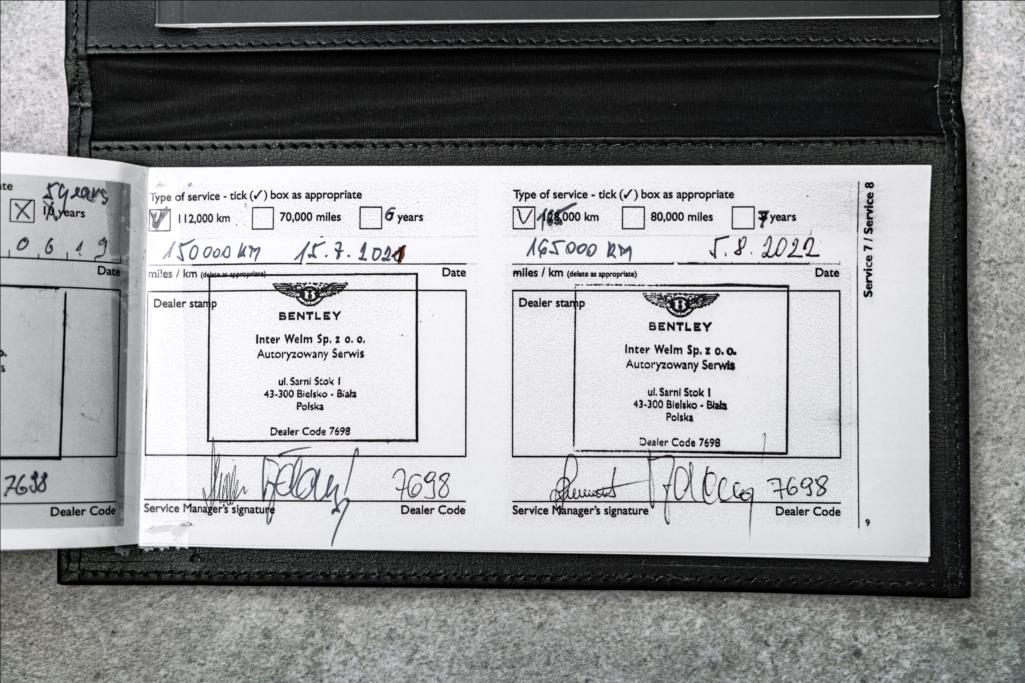 te 5 years
years
0 6 1 9
Date
7698
Dealer Code
Type of service - tick (✓) box as appropriate
112,000 km 70,000 miles 6 years
150 000 KM 15.7.2021
miles / km (delete as appropriate) Date
Dealer stamp
BENTLEY
Inter Welm Sp. z o. o.
Autoryzowany Serwis
ul. Sarni Stok 1
43-300 Bielsko - Biała
Polska
Dealer Code 7698
7698
Service Manager's signature Dealer Code
Type of service - tick (✓) box as appropriate
000 km 80,000 miles 7 years
165000 KM 5.8.2022
miles / km (delete as appropriate) Date
Dealer stamp
BENTLEY
Inter Welm Sp. z o. o.
Autoryzowany Serwis
ul. Sarni Stok 1
43-300 Bielsko - Biała
Polska
Dealer Code 7698
7698
Service Manager's signature Dealer Code
Service 7 / Service 8
9